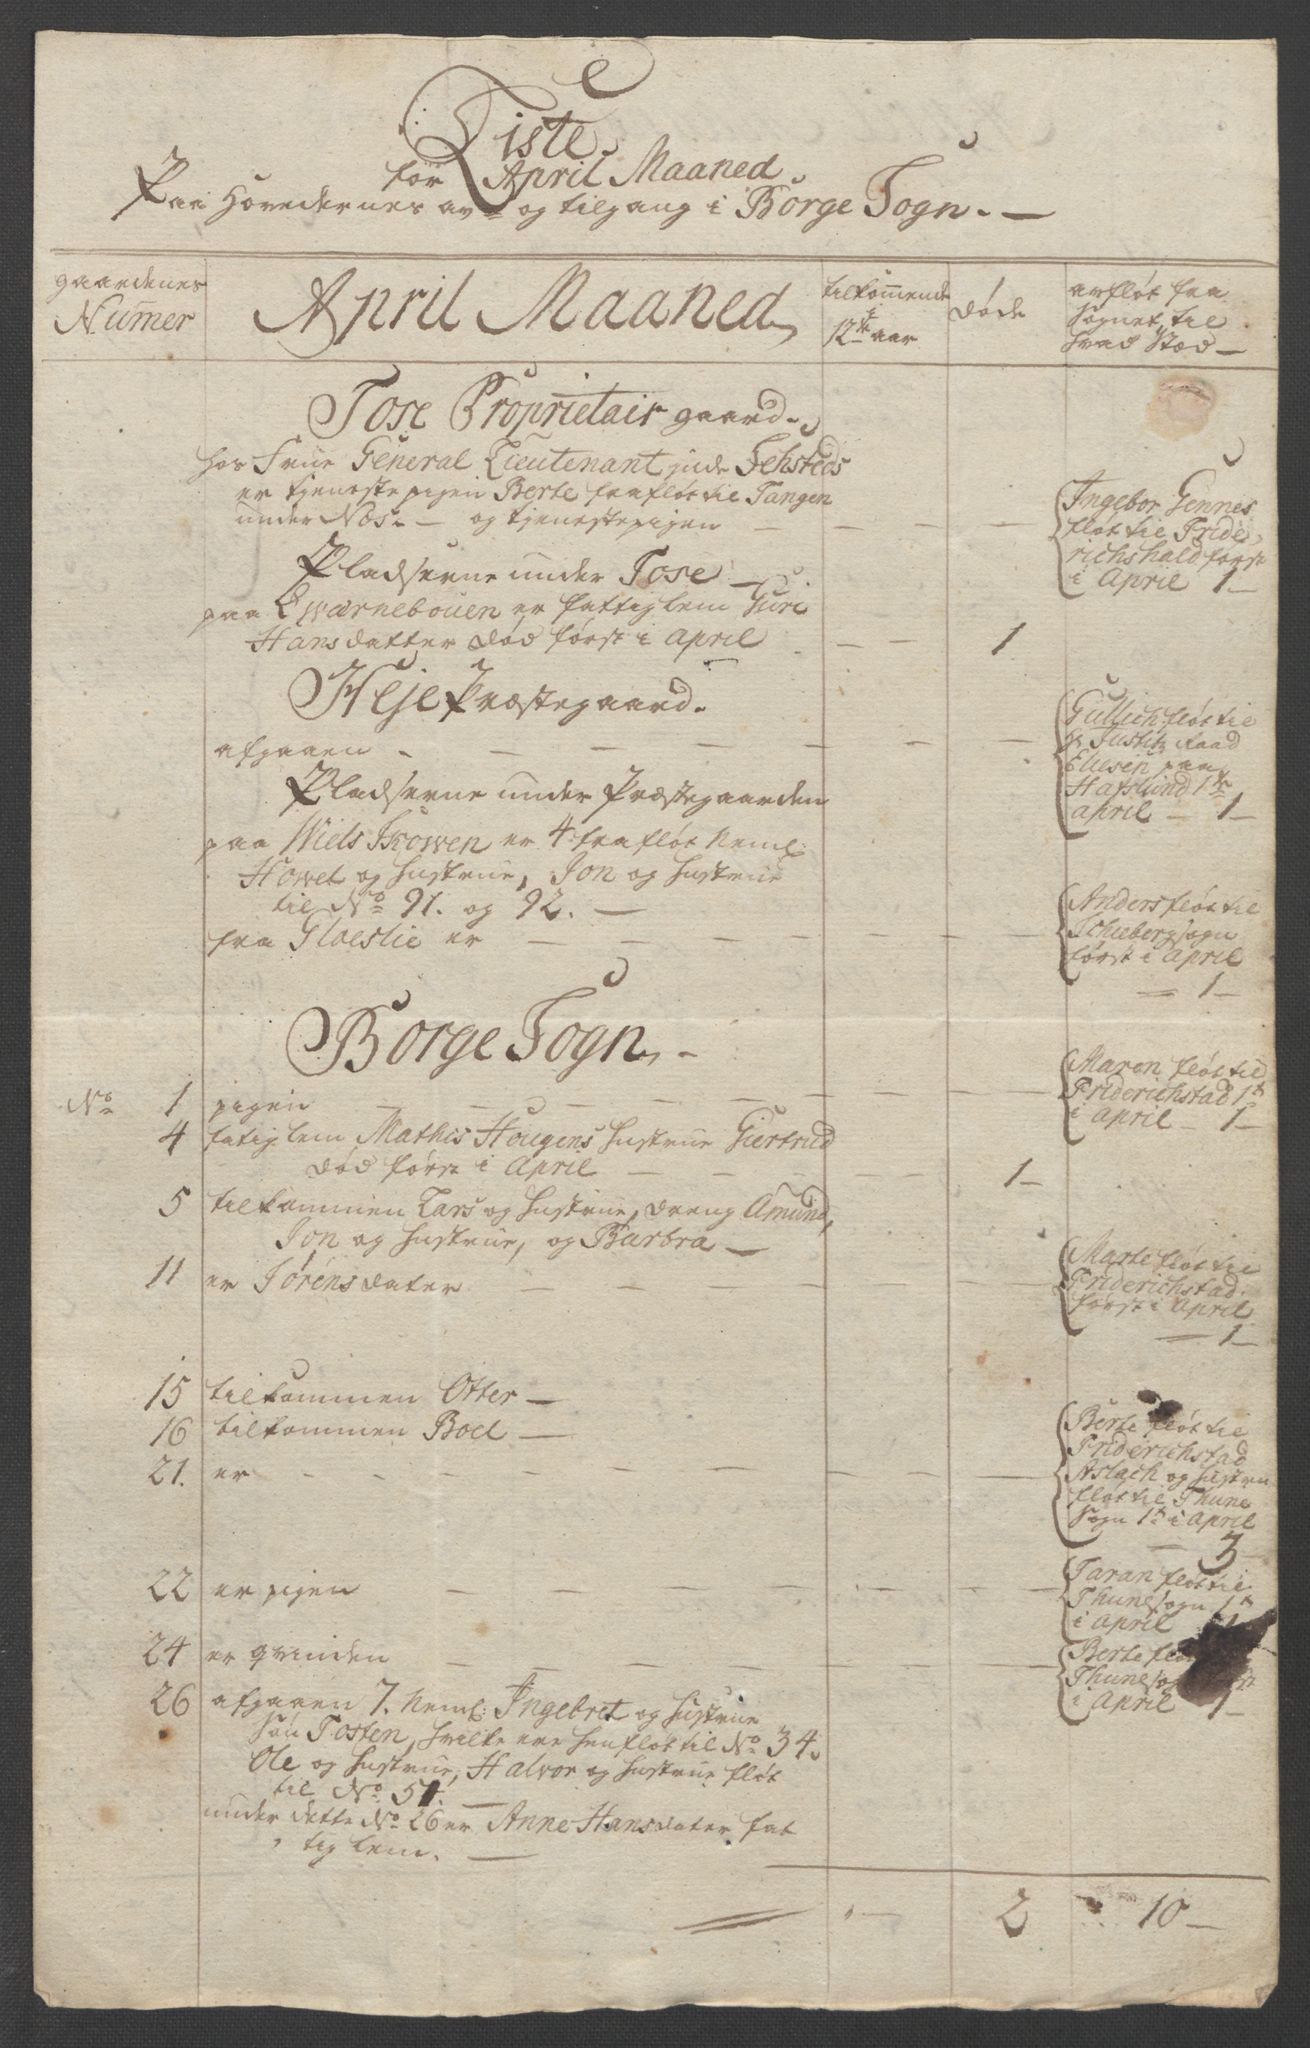 Liste
for April Maaned
Paa Hovedernes av og tilgang i Borge Sogn. —
gaardenes
Numer
April Maaned
tilkommende
12te aar
døde
avfløt fra
Sognet, til
hvad Stæd —
Tose Proprietair gaard.
hos Frue General Lieutenantinde Fehsteds
er tjenestepigen Berte frafløt til Tangen
under Næs. — og tjenestepigen — — —
Ingebor Gennes
fløt til Fride
richshald først
i April 1 —
Pladserne under Tose
paa Qwærnebouen er fattiglem Guri
Hansdatter død først i April — — 1
Heje Præstegaard.
afgaaen — — — — — — —
Gullich fløt til
Hr Justitz Raad
Elieson paa
Hafslund 1te
april — 1 —
Pladserne under Præstegaarden
paa Niels Skowen er 4 frafløt neml:
Howel og hustrue, Jon og hustrue
til No 91. og 92. —
fra Gloeslie er — — — — — —
Anders fløt til
Schiebergsogn
først i April
— 1 —
Borge Sogn. -
No 1 pigen — — — — — — —
Maren fløt til
Friderichstad 1te
i April — 1 —
4 fatiglem Mathis Hougens hustrue Giertrud
død først i April — — — — 1 —
5 tilkommen Lars og hustrue, dreng Amund,
Jon og hustrue, og Barbra —
11 er Sørensdater — — — — — —
Marte fløt til
Friderichstad
først i April
— 1 —
15 tilkommen Otter —
16 tilkommen Boel —
21. er — — — — — — —
Berte fløt til
Friderichstad
Aslach og hustru
fløt til Thune
Sogn 1te i April
— 3
22 er pigen — — — — — —
Taran fløt til
Thunesogn 1te
i April 1
24 er qvinden — — — — — —
Berte
Thune
i April 1 —
26 afgaaen 7. neml: Ingebret og hustrue
søn Tosten, hvilke ere henfløt til No 34.
Ole og hustrue, Halvor og hustrue fløt
til No 51. —
under dette No 26 er Anne Hansdater fat
tig lem. —
— 2 10 —